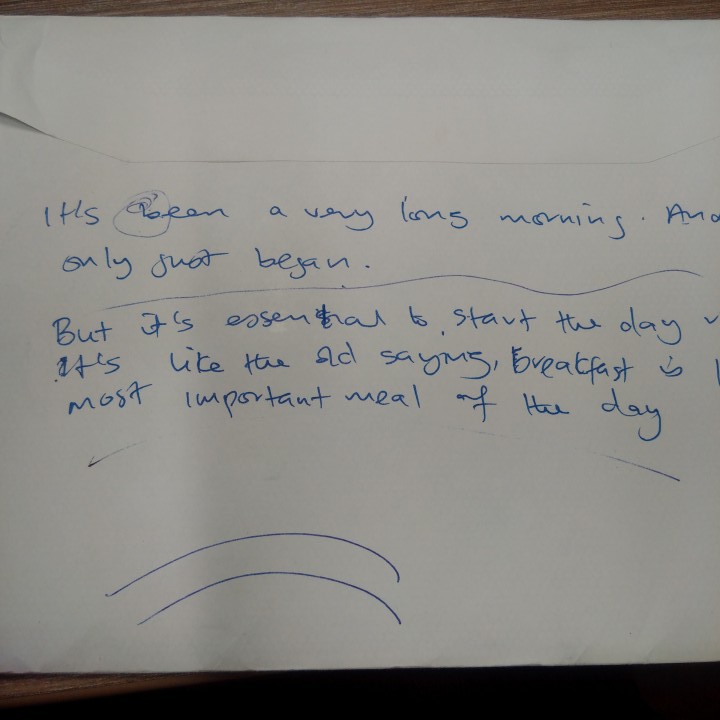 It's been a very long morning. And
only just began.
But it's essential to start the day
It's like the old saying, breakfast is
most important meal of the day